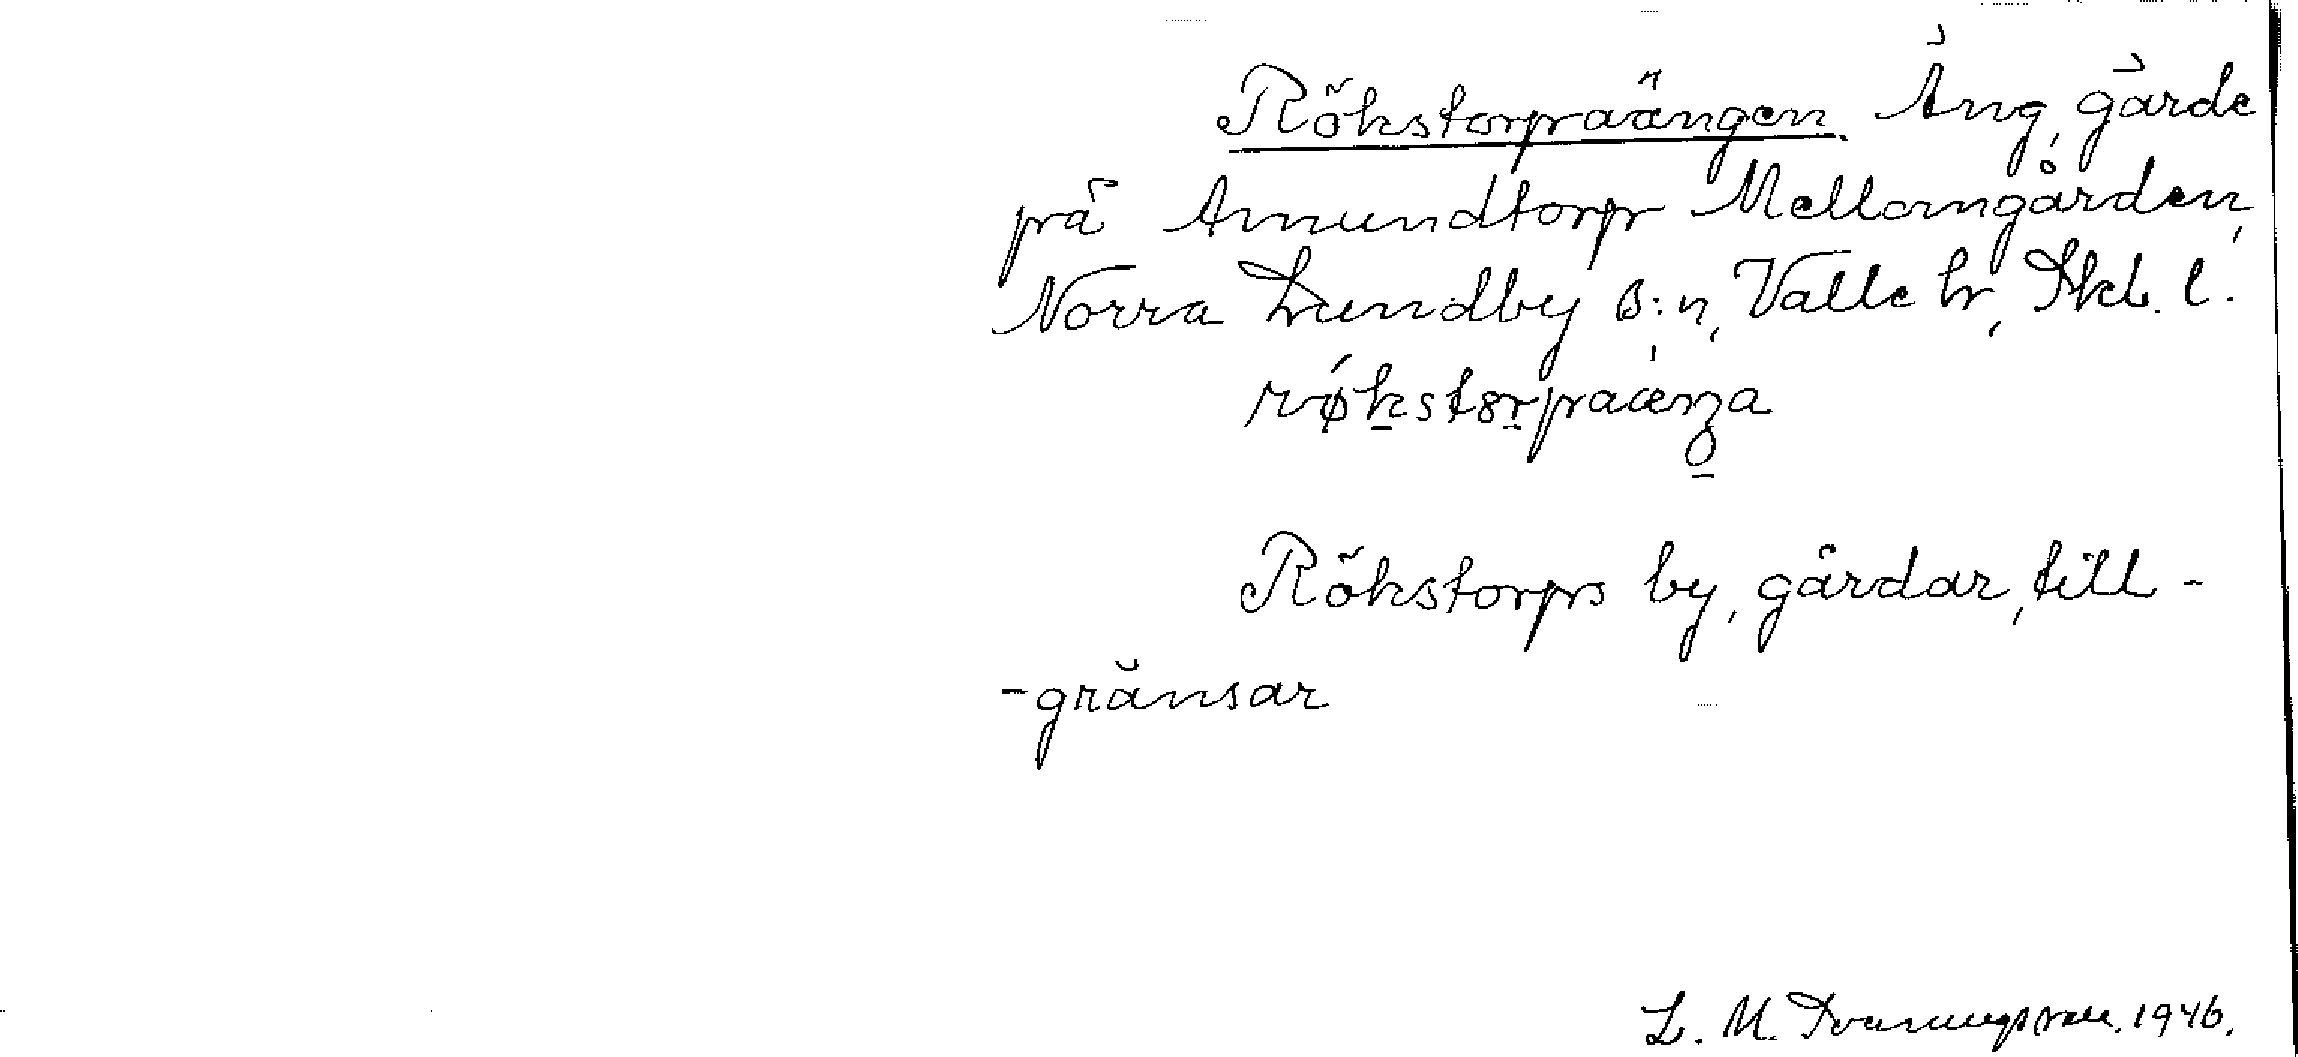 Rökstorpraängen. Äng, gärde
på Amundtorp Mellomgården,
Norra Lundby s:n, Valle hr, Skb. l.
røkstɔrpaæŋa
Rökstorps by, gårdar, till-
-gränsar
L. M. 1946.